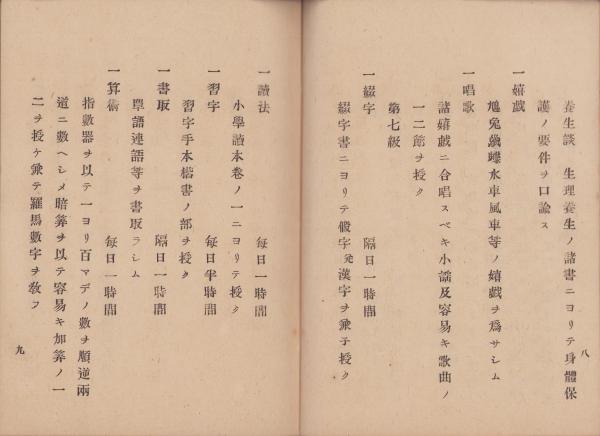 養生談　生理養生ノ諸書ニヨリテ身體保
護ノ要件ヲ口諭ス
一嬉戯
兎蝶水車風車等ノ嬉戯ヲ爲サシム
一唱歌
諸嬉戯ニ合唱スベキ小謠及容易キ歌曲ノ
一二節ヲ授ク
第七級
一綴字　隔日一時間
綴字書ニヨリテ假字漢字ヲ兼子授ク
八
一讀法　每日一時間
小學讀本卷ノ一ニヨリテ授ク
一習字　每日半時間
習字手本楷書ノ部ヲ授ク
一書取　隔日一時間
單語連語等ヲ書取ラシム
一算術　每日一時間
指數器ヲ以テ一ヨリ百マデノ數ヲ順逆兩
道ニ數ヘシメ暗算ヲ以テ容易キ加算ノ一
二ヲ授ケ兼テ羅馬數字ヲ敎フ
九